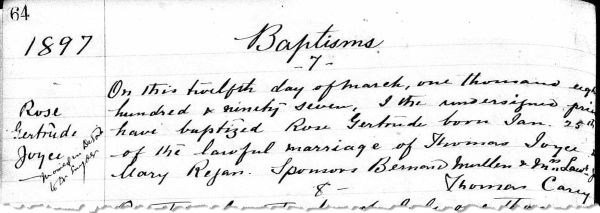 64
1897
Baptisms.
-7-
On this twelfth day of march, one thousand eight
hundred & ninety seven, I the undersigned priest
have baptized Rose Gertrude born Jan 25th
of the lawful marriage of Thomas Joyce &
Mary Regan. Sponsors Bernard Mullen & Mrs
Thomas Carey
Rose
Gertrude
Joyce
married in Detroit
to
8-